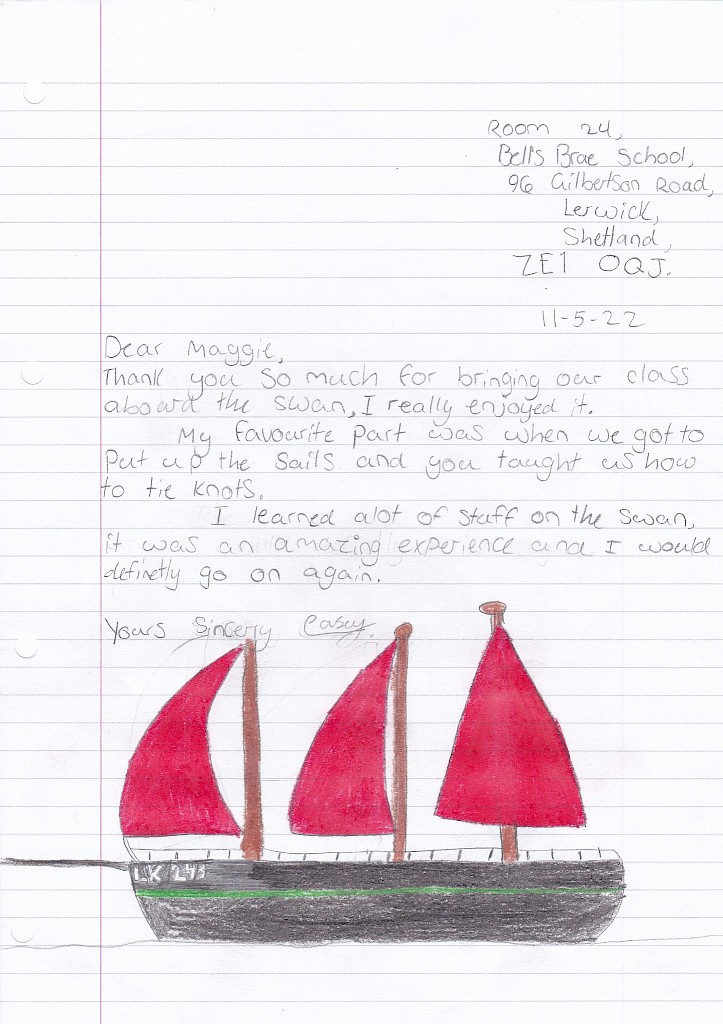 Room 24,
Bell's Brae School,
96 Gilbertson Road,
Lerwick,
Shetland,
ZE1 0QJ.
11-5-22
Dear Maggie,
Thank you so much for bringing our class
aboard the swan, I really enjoyed it.
My favourite part was when we got to
put up the sails and you taught us how
to tie knots.
I learned alot of stuff on the swan,
it was an amazing experience and I would
definetly go on again.
Yours Sincerly Casey.
LK 243